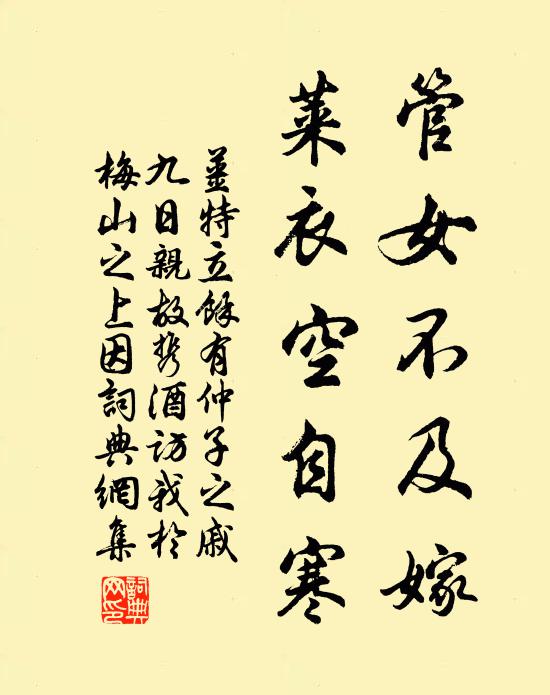 管女不及嫁
萊衣空自寒
薑特立餘有仲子之戚
九日親故携酒訪我於
梅山之上因詞典網集
詞典